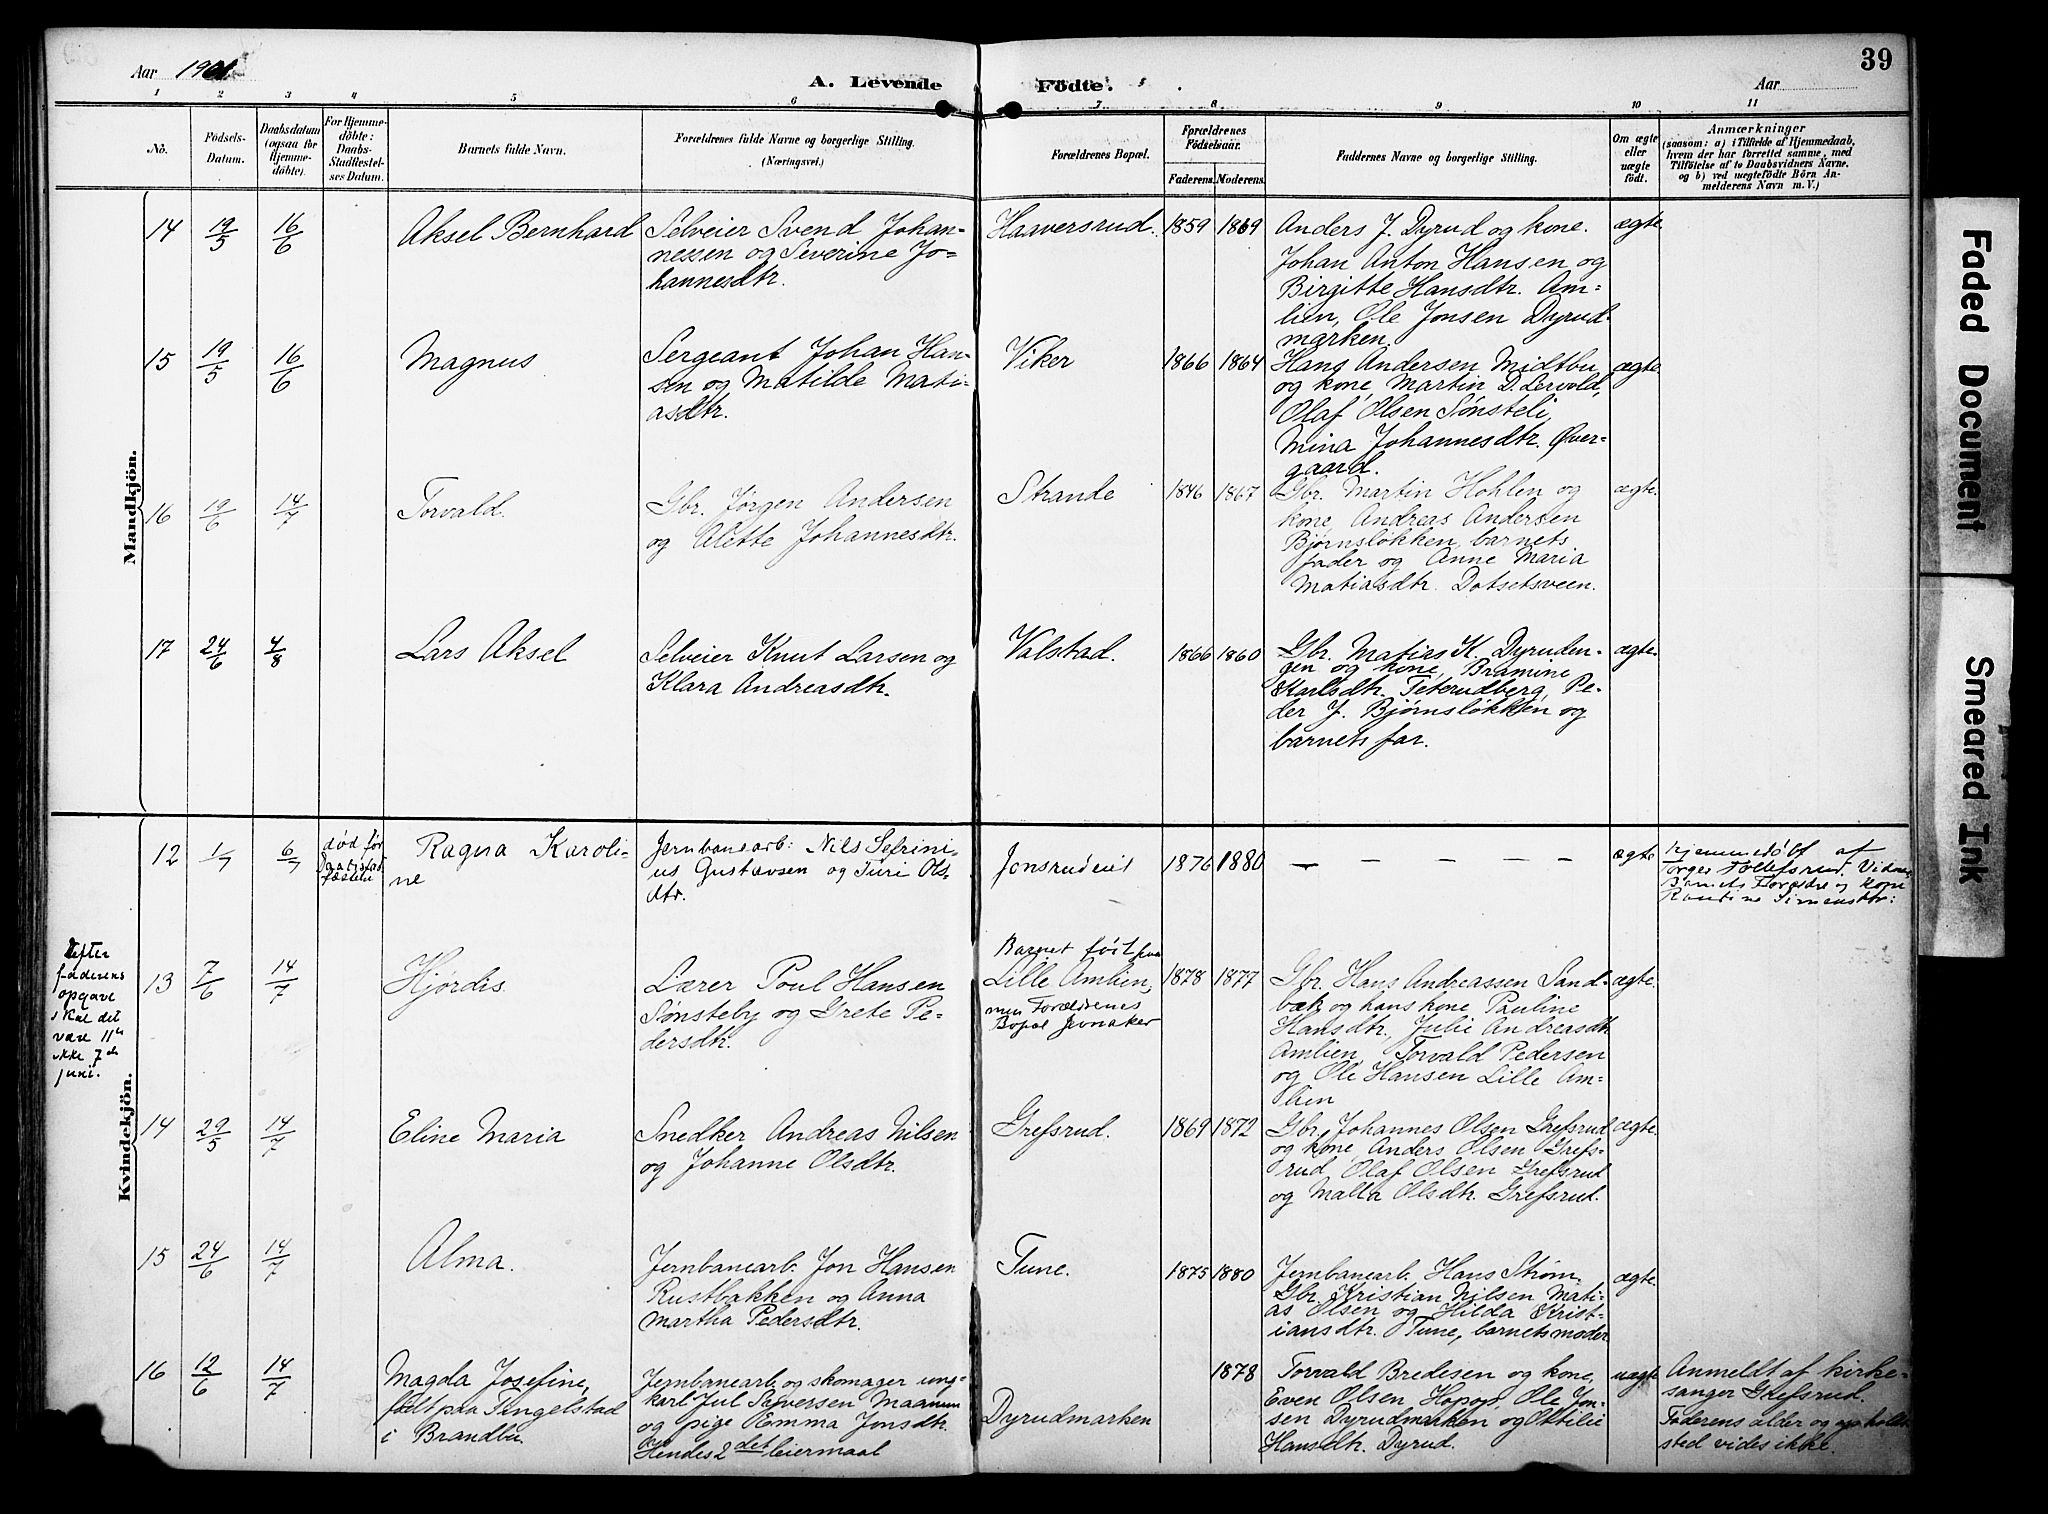 39
Aar 1901
A. Levende Födte.
Aar
1 2 3 4 5 6 7 8 9 10 11
No.
Födsels-
Datum.
Daabsdatum
(ogsaa for
Hjemme-
döbte).
For Hjemme-
döbte:
Daabs-
Stadfæstel-
ses Datum.
Barnets fulde Navn.
Forældrenes fulde Navne og borgerlige Stilling.
(Næringsvei.)
Forældrenes Bopæl.
Forældrenes
Fødselsaar.
Faderens. Moderens.
Faddernes Navne og borgerlige Stilling.
Om ægte
eller
uægte
født.
Anmærkninger
(saasom: a) i Tilfælde af Hjemmedaab,
hvem der har forrettet samme, med
Tilföielse af to Daabsvidners Navne,
og b) ved uægtefödte Börn An-
melderens Navn m. V.)
Mandkjön.
14 19/5 16/6 Aksel Bernhard
Selveier Svend Johan-
nessen og Severine Jo-
hannesdtr.
Haaversrud. 1859 1869
Anders J. Dyrud og kone.
Johan Anton Hansen og
Birgitte Hansdtr. Am-
lien, Ole Jonsen Dyrud-
marken.
ægte.
15 19/5 16/6 Magnus
Sergeant Johan Han-
sen og Matilde Mati-
asdtr.
Viker 1866 1864
Hans Andersen Midtbu
og kone, Martin D. Lervold,
Olaf Olsen Sønsteli,
Mina Johannesdtr. Øver-
gaard.
ægte.
16 19/6 14/7 Torvald.
Gbr. Jørgen Andersen
og Alette Johannesdtr.
Strande 1846 1867
Gbr. Martin Hohlen og
kone, Andreas Andersen
Bjørnsløkken, barnets
fader og Anne Maria
Matiasdtr. Dotsetsveen.
ægte.
17 24/6 4/8 Lars Aksel
Selveier Knut Larsen og
Klara Andreasdtr.
Valstad. 1866 1860
Gbr. Matias K. Dyruden-
gen og kone, Bramine
Karlsdtr. Teterudberg, Pe-
der J. Bjørnsløkken og
barnets far.
ægte.
Kvindekjön.
12 1/7 6/7
død før
Ragna Karoli-
ne
Jernbanearb: Nils Sefrini-
us Gustavsen og Turi Ols-
dtr.
Jonsrudeiet 1876 1880
— — — — — —
ægte
Hjemmedøbt af
Tollefsrud. Vidner,
Barnets Forældre og kone
Simensdtr:
Efter
faderens
opgave
skal det
være 11te
ikke 7de
juni.
13 7/6 14/7 Hjørdis
Lærer Poul Hansen
Sønsteby og Grete Pe-
dersdtr.
Barnet født paa
Lille Amlien,
men Forældrenes
Bopæl Jevnaker
1878 1877
Gbr. Hans Andreassen Sand-
bæk og hans kone Pauline
Hansdtr. Julie Andreasdtr.
Amlien, Torvald Pedersen
og Ole Hansen Lille Am-
lien
ægte.
14 29/5 14/7 Eline Maria
Snedker Andreas Nilsen
og Johanne Olsdtr.
Grefsrud. 1869 1872
Gbr. Johannes Olsen Grefsrud
og kone, Anders Olsen Grefs-
rud, Olaf Olsen Grefsrud
og Malla Olsdtr. Grefsrud.
ægte.
15 24/6 14/7 Alma.
Jernbanearb. Jon Hansen
Rustbakken og Anna
Martha Pedersdtr.
Tune. 1875 1880
Jernbanearb. Hans Strøm-
Gbr. Kristian Nilsen Mati-
as Olsen og Hilda Krist-
iansdtr. Tune, barnets moder
ægte.
16 12/6 14/7 Magda Josefine,
født paa Tingelstad
i Brandbu
Jernbanearb. og skomager ung-
karl Jul Syversen Maanum
og pige Emma Jonsdtr.
Hendes 2det leiermaal
Dyrudmarken
1878
Torvald Bredesen og kone,
Even Olsen Ole Jon-
sen Dyrudmarken og Ottilie
Hansdtr. Dyrud.
uægte
Anmeldt af kirke-
sanger Grefsrud.
Faderens alder og opholds
sted vides ikke.
Faded Document
Smeared Ink